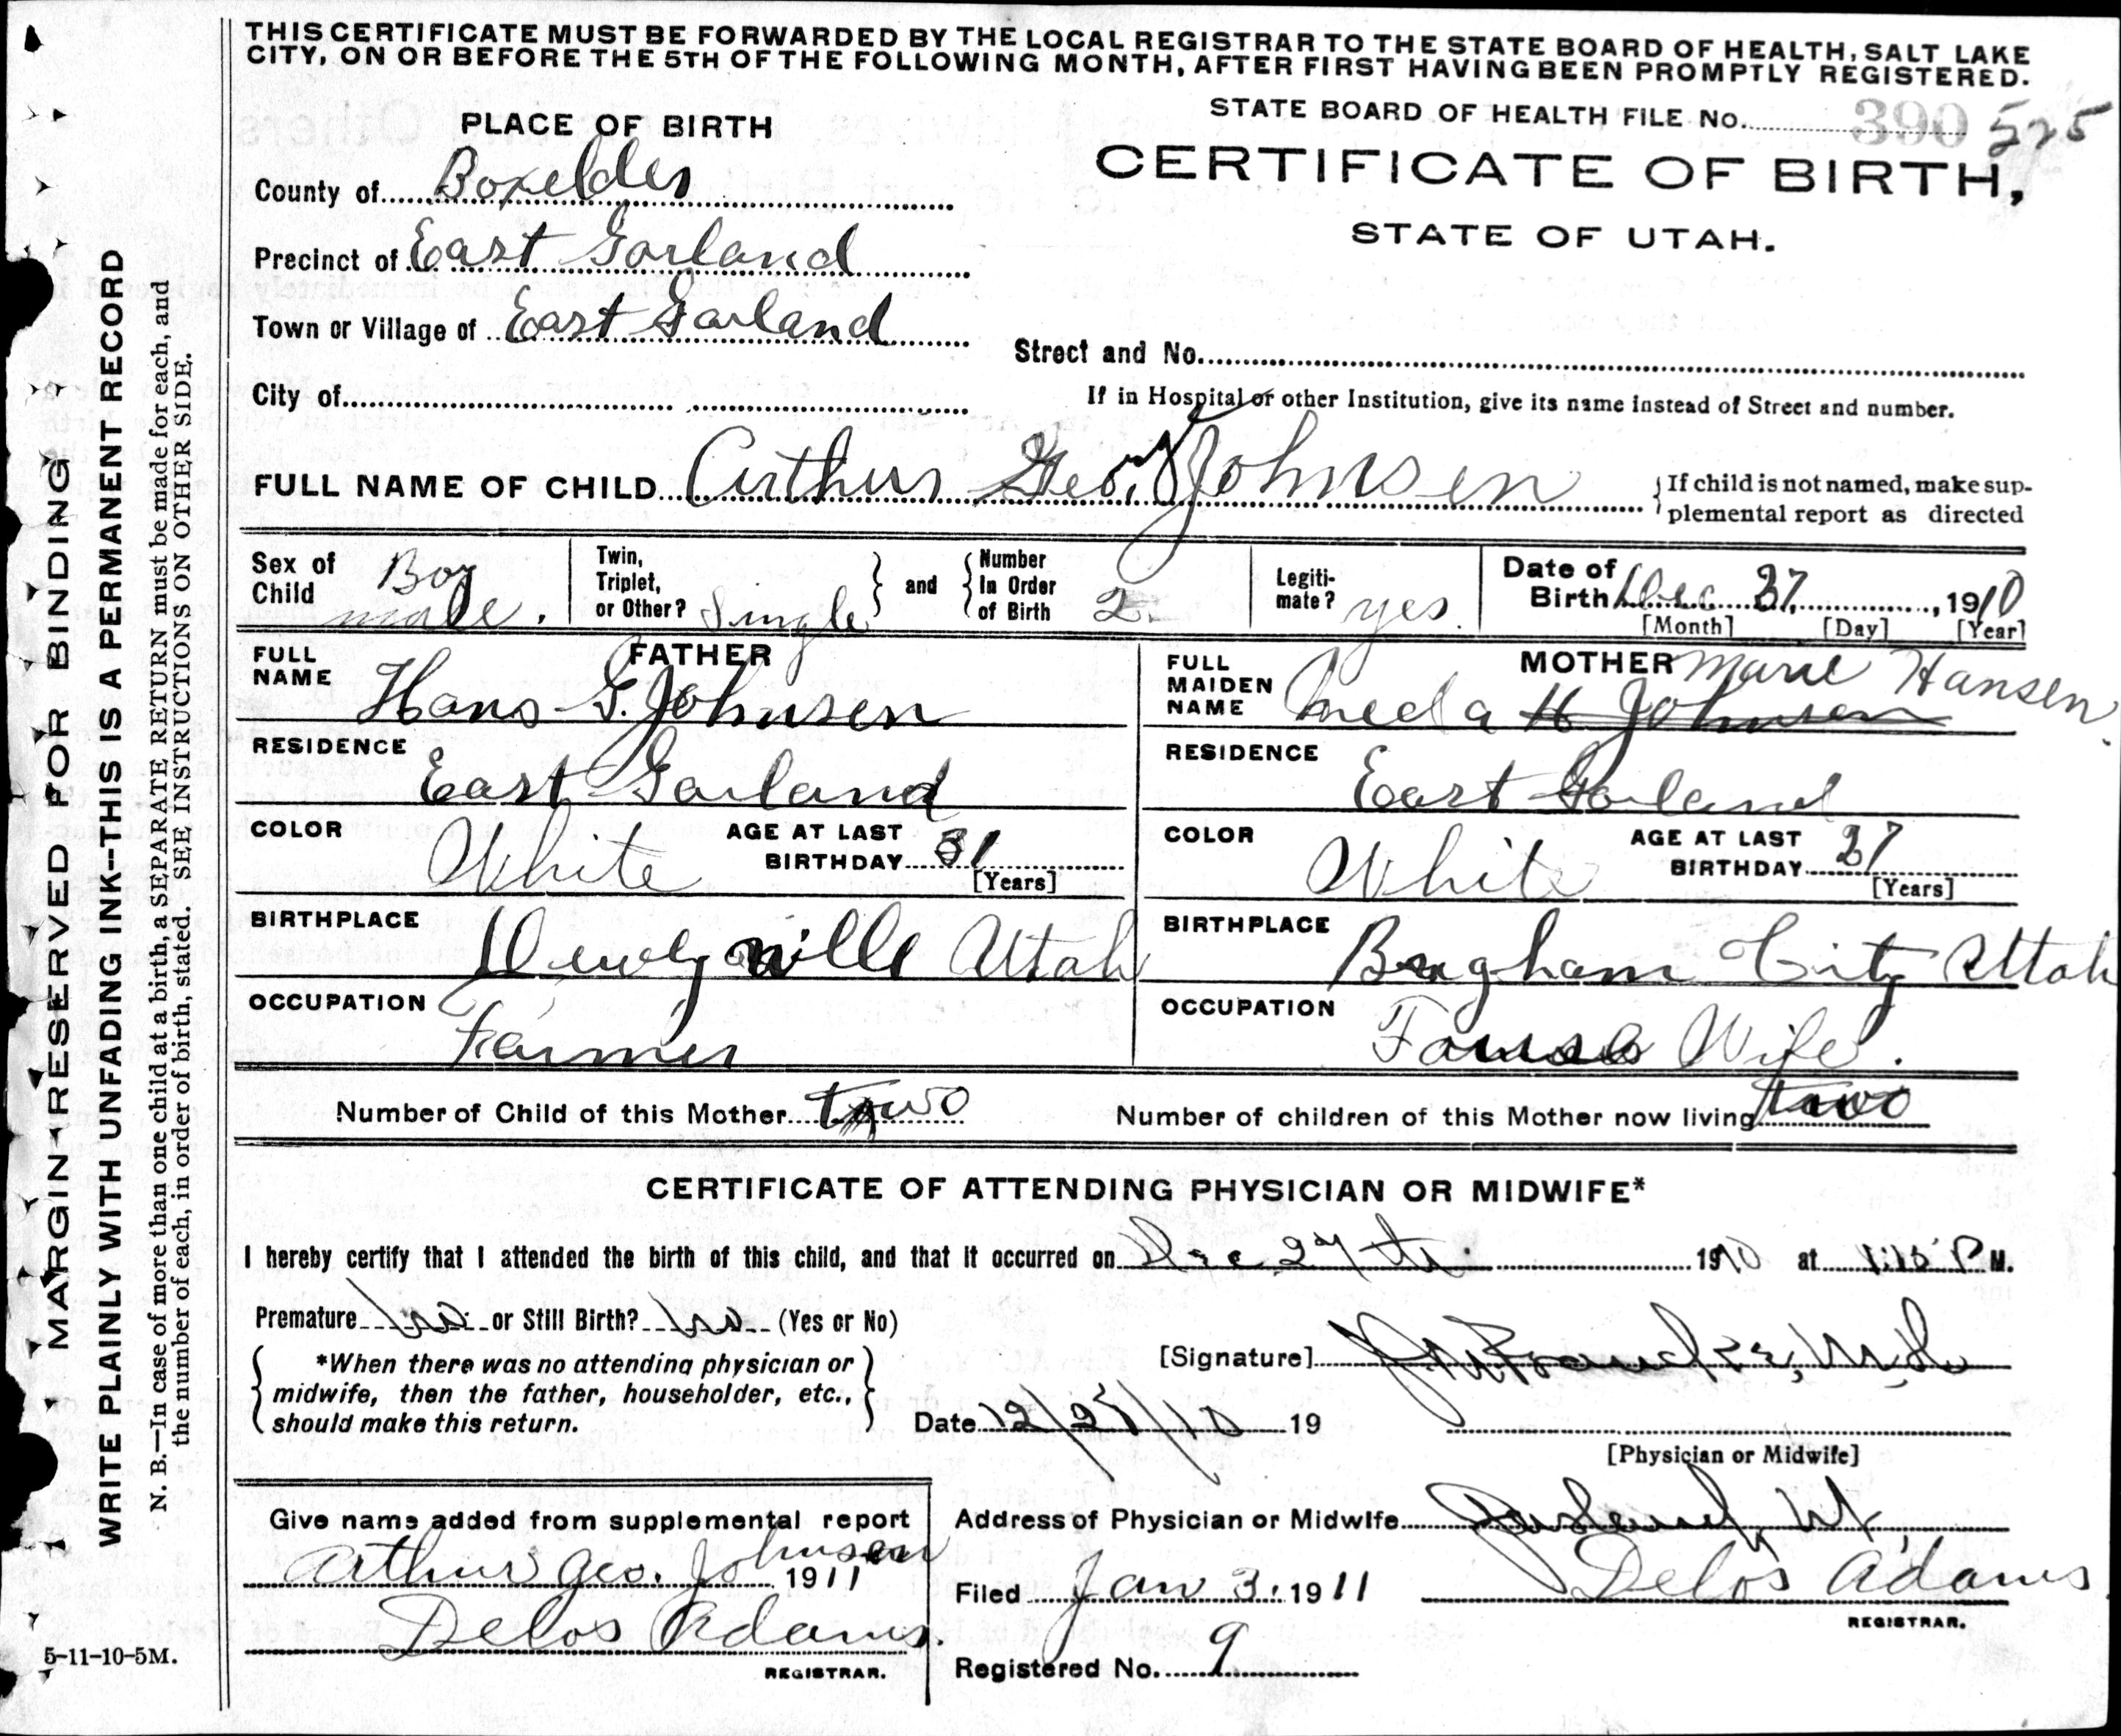 THIS CERTIFICATE MUST BE FORWARDED BY THE LOCAL REGISTRAR TO THE STATE BOARD OF HEALTH, SALT LAKE
CITY, ON OR BEFORE THE 5TH OF THE FOLLOWING MONTH, AFTER FIRST HAVING BEEN PROMPTLY REGISTERED.
STATE BOARD OF HEALTH FILE No. 390 525
PLACE OF BIRTH
CERTIFICATE OF BIRTH,
STATE OF UTAH.
County of Boxelder
Precinct of East Garland
Town or Village of East Garland
Street and No.
City of
If in Hospital or other Institution, give its name instead of Street and number.
FULL NAME OF CHILD Arthur Geo. Johnsen
If child is not named, make sup-
plemental report as directed
Sex of Child Boy male.
Twin, Triplet, or Other? Single and Number In Order of Birth 2
Legiti-mate? yes.
Date of Birth Dec 27, 1910
[Month] [Day] [Year]
FATHER
FULL NAME Hans G. Johnsen
RESIDENCE East Garland
COLOR White AGE AT LAST BIRTHDAY 31
[Years]
BIRTHPLACE Deweyville Utah
OCCUPATION Farmer
MOTHER
FULL MAIDEN NAME Meda H Johnsen Marie Hansen
RESIDENCE East Garland
COLOR White AGE AT LAST BIRTHDAY 27
[Years]
BIRTHPLACE Brigham City Utah
OCCUPATION Wife.
Number of Child of this Mother two
Number of children of this Mother now living two
CERTIFICATE OF ATTENDING PHYSICIAN OR MIDWIFE*
I hereby certify that I attended the birth of this child, and that it occurred on Dec 27th 1910 at 1:15 P M.
Premature No or Still Birth? No (Yes or No)
*When there was no attending physician or
midwife, then the father, householder, etc.,
should make this return.
[Signature] M.D.
Date 12/27/10 19
[Physician or Midwife]
Give name added from supplemental report
Arthur Geo. Johnsen 1911
Delos Adams.
REGISTRAR.
Address of Physician or Midwife Garland, Ut.
Filed Jan 3. 1911
Delos Adams
REGISTRAR.
Registered No. 9
5-11-10-5M.
MARGIN RESERVED FOR BINDING
WRITE PLAINLY WITH UNFADING INK--THIS IS A PERMANENT RECORD
N. B.—In case of more than one child at a birth, a SEPARATE RETURN must be made for each, and
the number of each, in order of birth, stated. SEE INSTRUCTIONS ON OTHER SIDE.